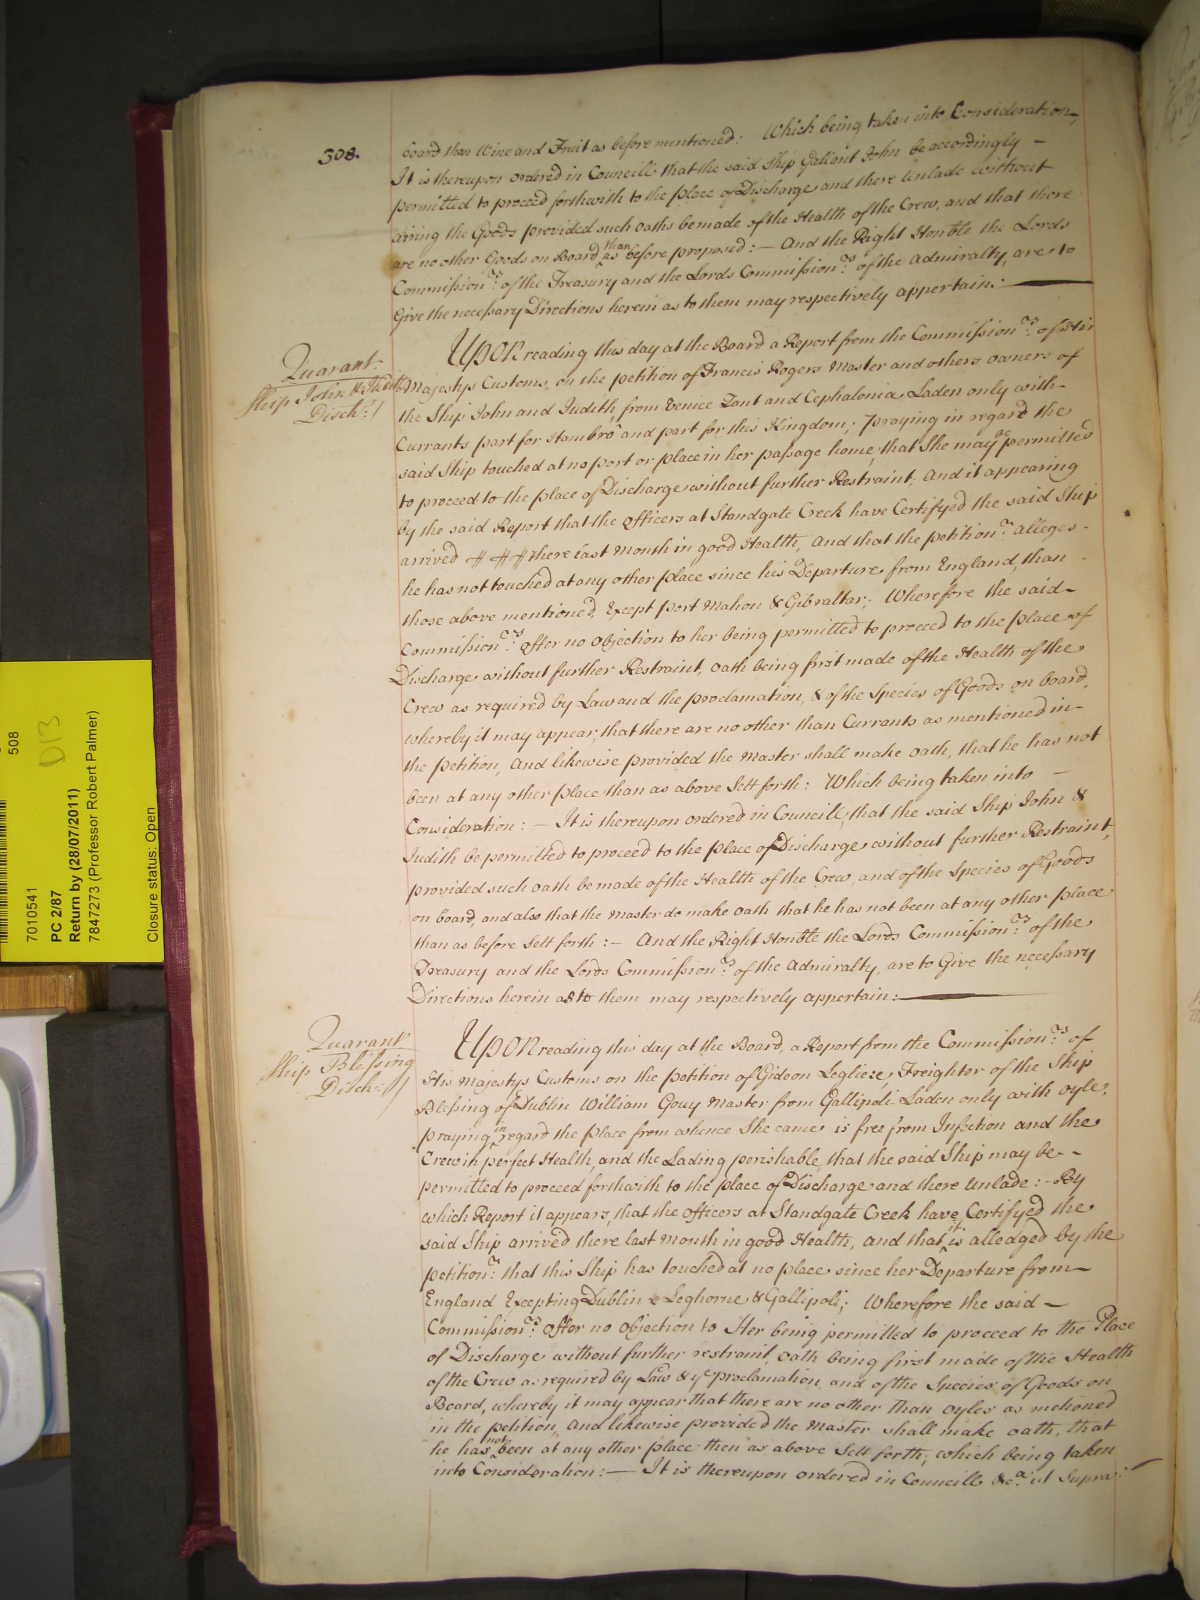 508.
board than Wine and Fruit as before mentioned: Which being taken into Consideration,
It is thereupon ordered in Councill that the said Ship Gallant John be accordingly –
permitted to proceed forthwith to the place of Discharge and there Unlade without
airing the Goods provided such oaths be made of the Health of the Crew, and that there
are no other Goods on Board than as before proposed: – And the Right Honble the Lords
Commission.rs of the Treasury and the Lords Commission.rs of the Admiralty, are to
Give the necessary Directions herein as to them may respectively appertain:
Quarant:
Ship John & Judith
Disch:d
Upon reading this day at the Board a Report from the Commission.rs of His
Majestys Customs, on the petition of Francis Rogers Master and others owners of
the Ship John and Judith, from Venice Zant and Cephalonia, Laden only with –
Currants part for Hambro' and part for this Kingdom; praying in regard the
said Ship touched at no port or place in her passage home, that She may be permitted
to proceed to the place of Discharge without further Restraint; And it appearing
by the said Report that the Officers at Standgate Creek have Certifyed the said Ship
arrived there last Month in good Health, And that the petition.r alleges –
he has not touched at any other place since his Departure from England, than
those above mentioned, Except port Mahon & Gibraltar; Wherefore the said –
Commission.rs Offer no Objection to her being permitted to proceed to the place of
Discharge without further Restraint, oath being first made of the Health of the
Crew as required by Law and the proclamation, & of the Species of Goods on board,
whereby it may appear, that there are no other than Currants as mentioned in –
the petition, And likewise provided the Master shall make oath, that he has not
been at any other place than as above Sett forth: Which being taken into –
Consideration: – It is thereupon ordered in Councill, that the said Ship John &
Judith be permitted to proceed to the place of Discharge without further Restraint,
provided such oath be made of the Health of the Crew, and of the Species of Goods
on board, and also that the Master do make oath that he has not been at any other place
than as before Sett forth: – And the Right Honble the Lords Commission.rs of the
Treasury and the Lords Commission.rs of the Admiralty, are to Give the necessary
Directions herein as to them may respectively appertain:
Quarant
Ship Blessing
Disch:d
Upon reading this day at the Board, a Report from the Commission.rs of
His Majestys Customs on the petition of Gideon Legliese, Freighter of the Ship
Blessing of Dublin William Gouy Master from Gallipoli Laden only with oyle,
praying in regard the place from whence She came is free from Infection and the
Crew in perfect Health, and the Lading perishable, that the said Ship may be –
permitted to proceed forthwith to the place of Discharge and there Unlade: – By
which Report it appears, that the Officers at Standgate Creek have Certifyed the
said Ship arrived there last Month in good Health, and that it is alledged by the
petition.r that this Ship has touched at no place since her Departure from –
England Excepting Dublin Leghorne & Gallipoli; Wherefore the said –
Commission.rs Offer no Objection to Her being permitted to proceed to the Place
of Discharge without further restraint, oath being first made of the Health
of the Crew as required by Law & ye proclamation, and of the Species of Goods on
Board, whereby it may appear that there are no other than oyles as metioned
in the petition, And likewise provided the Master shall make oath, that
he has not been at any other place then as above Sett forth; which being taken
into Consideration: – It is thereupon ordered in Councill &c.a ut Supra:
508
D13
7010541
PC 2/87
Return by (28/07/2011)
7847273 (Professor Robert Palmer)
Closure status: Open